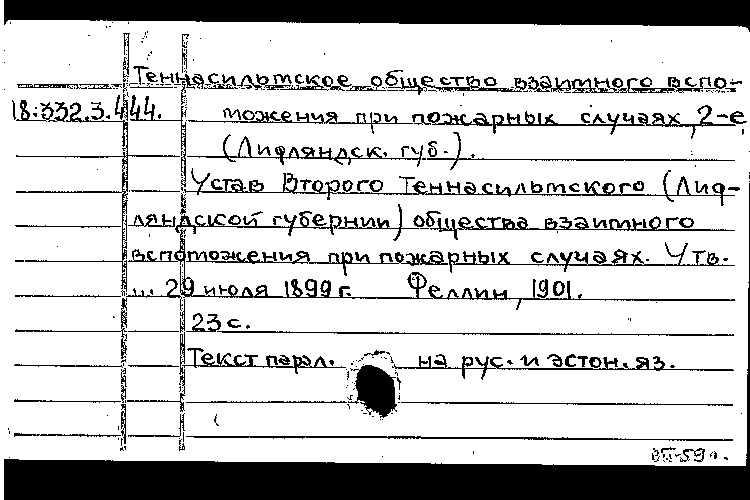 Теннасильмское общество взаимного вспо-
18:332.3.444. можения при пожарных случаях, 2-е
(Лифляндск. губ.).
Устав Второго Теннасильмского (Лиф-
ляндской губернии) общества взаимного
вспоможения при пожарных случаях. Утв.
29 июля 1899 г. Феллин, 1901.
23 с.
Текст парал. на рус. и эстон. яз.